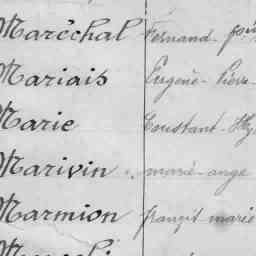 Maréchal Fernand
Mariais Eugène- Pierre
Marie Constant-
Marivin marie-ange
Marmion françis marie